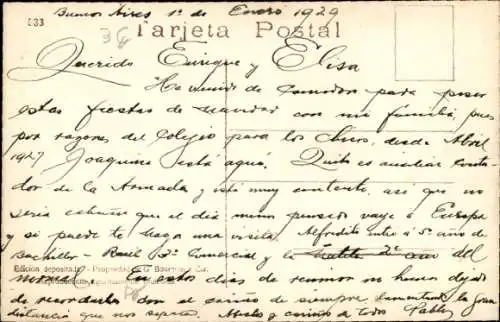 Buenos Aires 1º de Enero 1929
533
36
Tarjeta Postal
Querido Enrique y Elisa
He venido de Comodoro para pasar
estas fiestas de navidad con mi familia, pues
por razones del Colegio para los chicos, desde Abril
1927 Joaquina está aquí. Quito es auxiliar conta-
dor de la Armada y está muy contento, así que no
sería extraño que el día menos pensado vaya a Europa
y si puede te haga una visita. Alfredito entró a 5º año de
Bachiller - Raúl 3º Comercial y la 2º año del
Edición depositada - Propiedad de G. Bourquin y Cía.
normal. En estos días de reunion no hemos dejado
de recordarlos con el cariño de siempre lamentando la gran
distancia que nos separa. Abrazos y cariños a todos Pablo